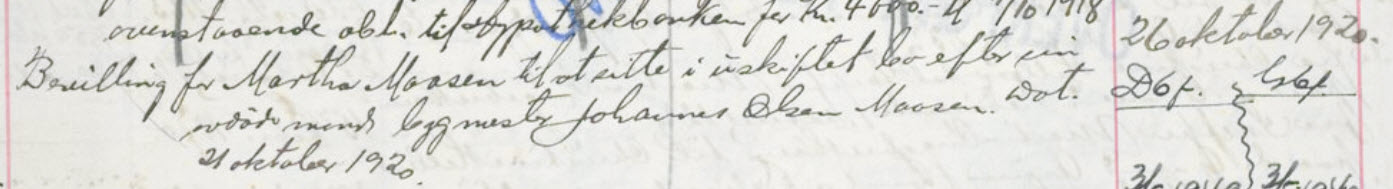 ovenstaaende obl. til Hypothekbanken for Kr. 4000.- d 7/10 1918
26 oktober 1920.
Bevilling for Martha Moasen til at sitte i uskiftet bo efter sin
D6f. G6f.
avdøde mand byggmester Johannes Olsen Moasen. Dat.
21 oktober 1920.